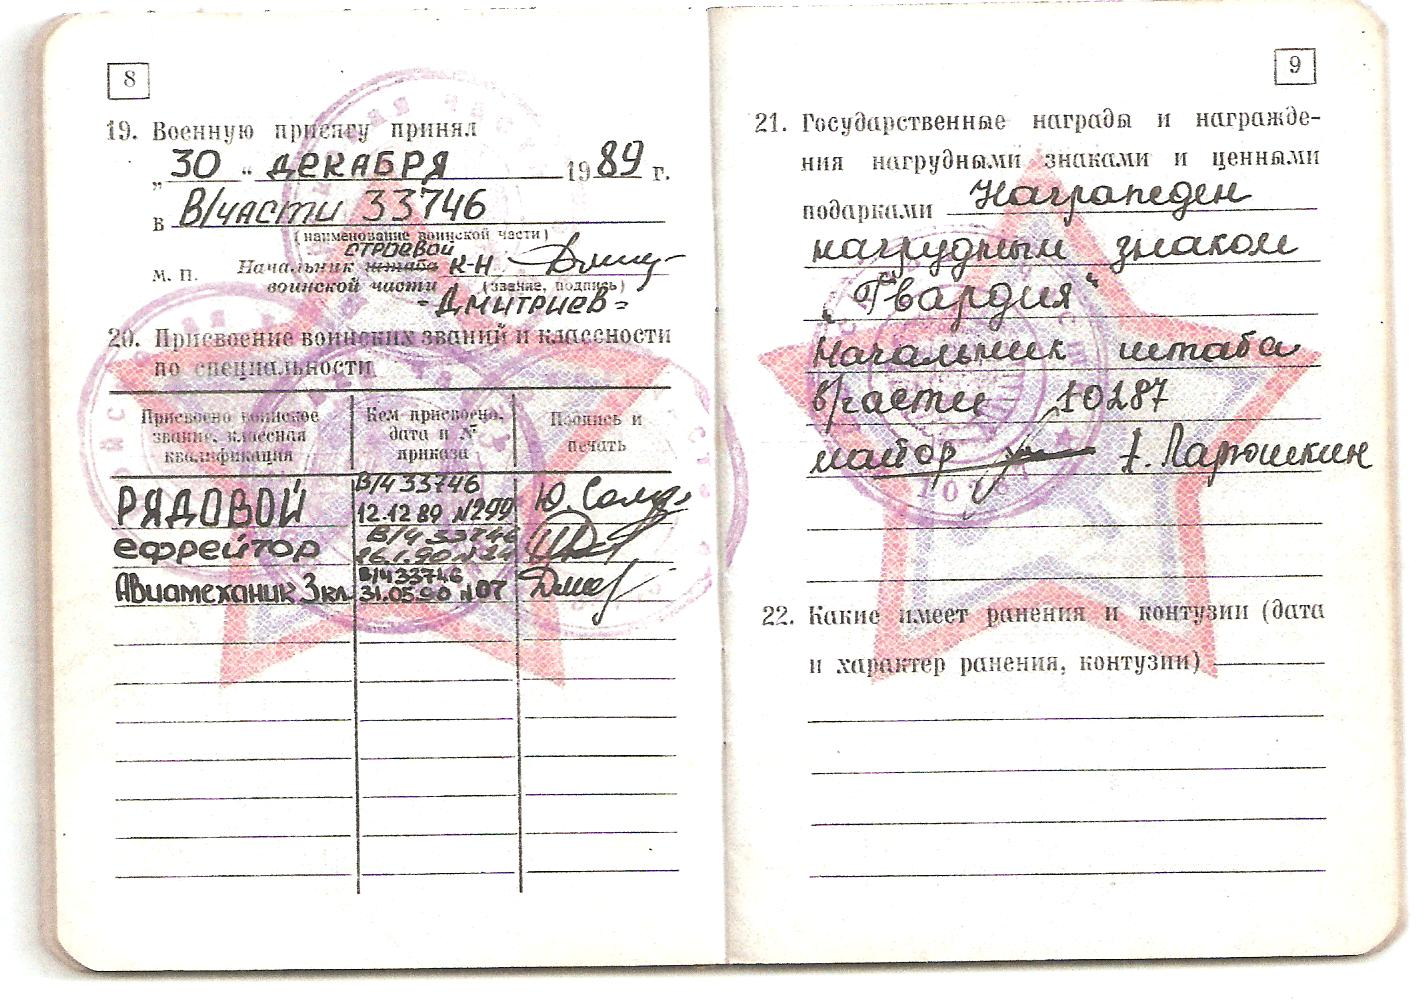 8
19. Военную присягу принял
„ 30 “ ДЕКАБРЯ 1989 г.
в В/части 33746
(наименование воинской части)
строевой
м. п. Начальник штаба к-н
воинской части (звание, подпись)
-Дмитриев=
20. Присвоение воинских званий и классности
по специальности
Присвоено воинское звание, классная квалификация
Кем присвоено, дата и № приказа
Подпись и печать
РЯДОВОЙ В/Ч 33746 12.12.89 №299 Ю.
ефрейтор В/Ч 33746
Авиамеханик 3 кл. В/Ч 33746 31.05.90 №07
9
21. Государственные награды и награжде-
ния нагрудными знаками и ценными
подарками Награжден
нагрудным знаком
„Гвардия“
Начальник штаба
в/части 10287
майор А. Ларюшкин
22. Какие имеет ранения и контузии (дата
и характер ранения, контузии)